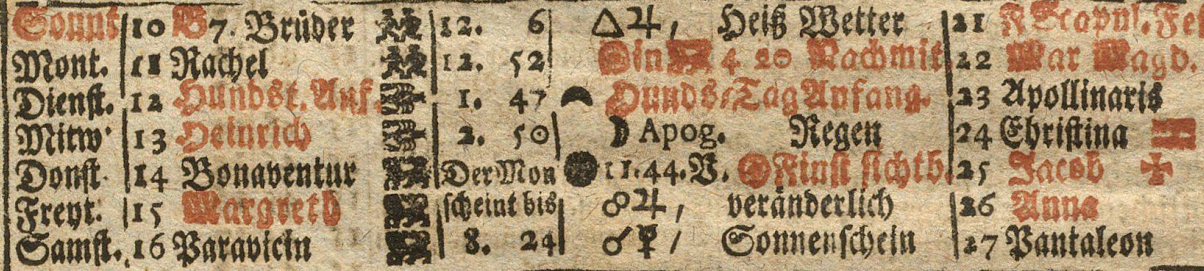 Sonnt 10 G 7. Brüder 12. 6 △♃, Heiß Wetter 21 Scapul. Fe
Mont. 11 Rachel 12. 52 in 4 20 Nachmit 22 Mar Magd.
Dienst. 12 Hundst. Anf. 1. 47 Hunds-Tag Anfang. 23 Apollinaris
Mitw 13 Heinrich 2. 50 ☽ Apog. Regen 24 Christina
Donst. 14 Bonaventur Der Mon ● 11.44.V. ☉ Finst sichtb. 25 Jacob ✠
Freyt. 15 Margreth scheint bis ☍♃, veränderlich 26 Anna
Samst. 16 Paravicin 8. 24 ☌☿ / Sonnenschein 27 Pantaleon